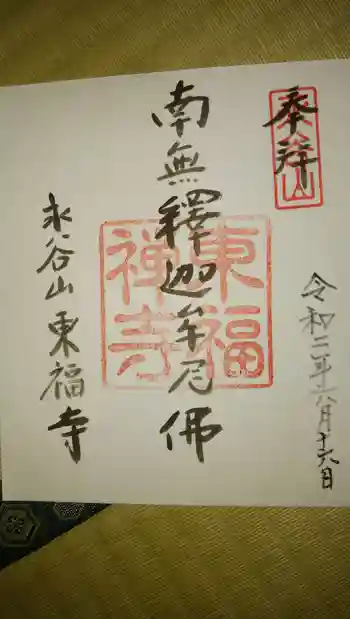 奉拝
永谷山
令和二年八月十六日
南無釋迦牟尼佛
東福禅寺
永谷山東福寺